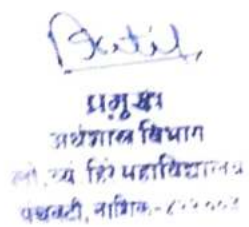 प्रमुख
अर्थशास्त्र विभाग
लो. व्यं हिं महाविद्यालय
पंचवटी, नाशिक-